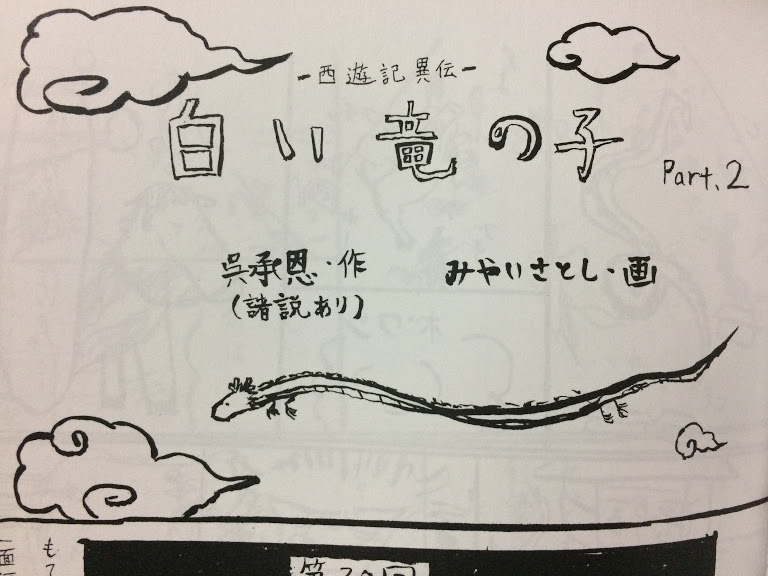 -西遊記異伝-
白い竜の子
Part.2
呉承恩・作
(諸説あり)
みやいさとし・画